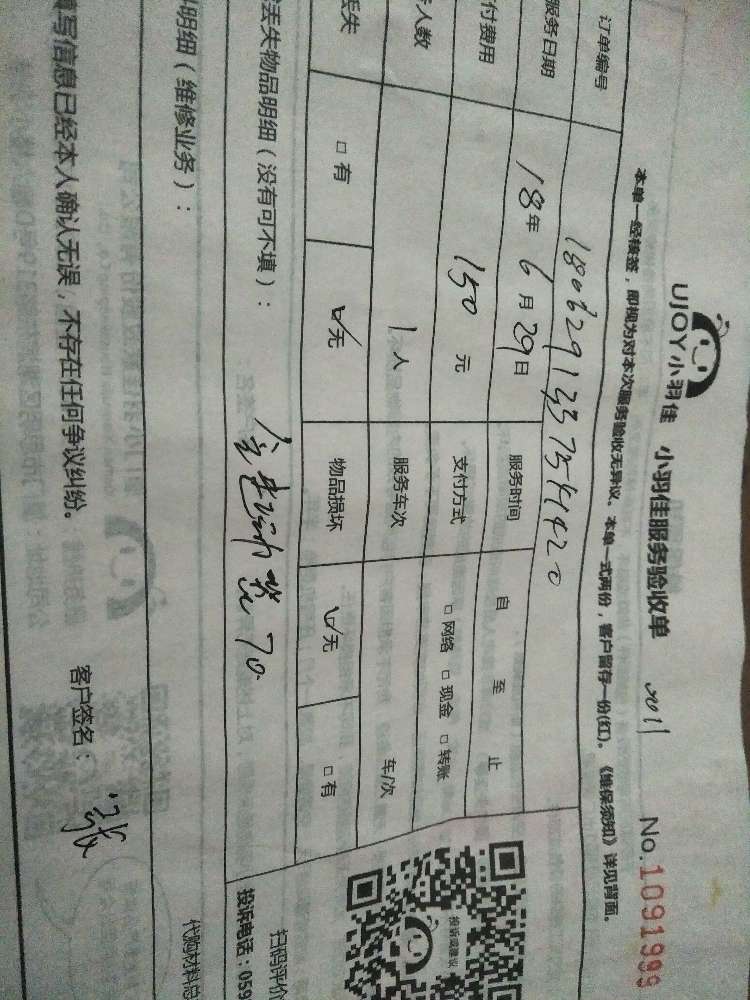 UJOY小羽佳 小羽佳服务验收单 No.1091999
本单一经核签，即视为对本次服务验收无异议。本单一式两份，客户留存一份(红)。《维保须知》详见背面。
订单编号
服务日期 18年6月29日 服务时间 自 至 止
付费用 150元 支付方式 □网络 □现金 □转账
人数 1人 服务车次 车/次
丢失 □有 ☑无 物品损坏 ☑无 □有
丢失物品明细（没有可不填）：
70
明细（维修业务）：
填写信息已经本人确认无误，不存在任何争议纠纷。 客户签名：张
投诉或建议
扫码评价
投诉电话：059
代购材料总